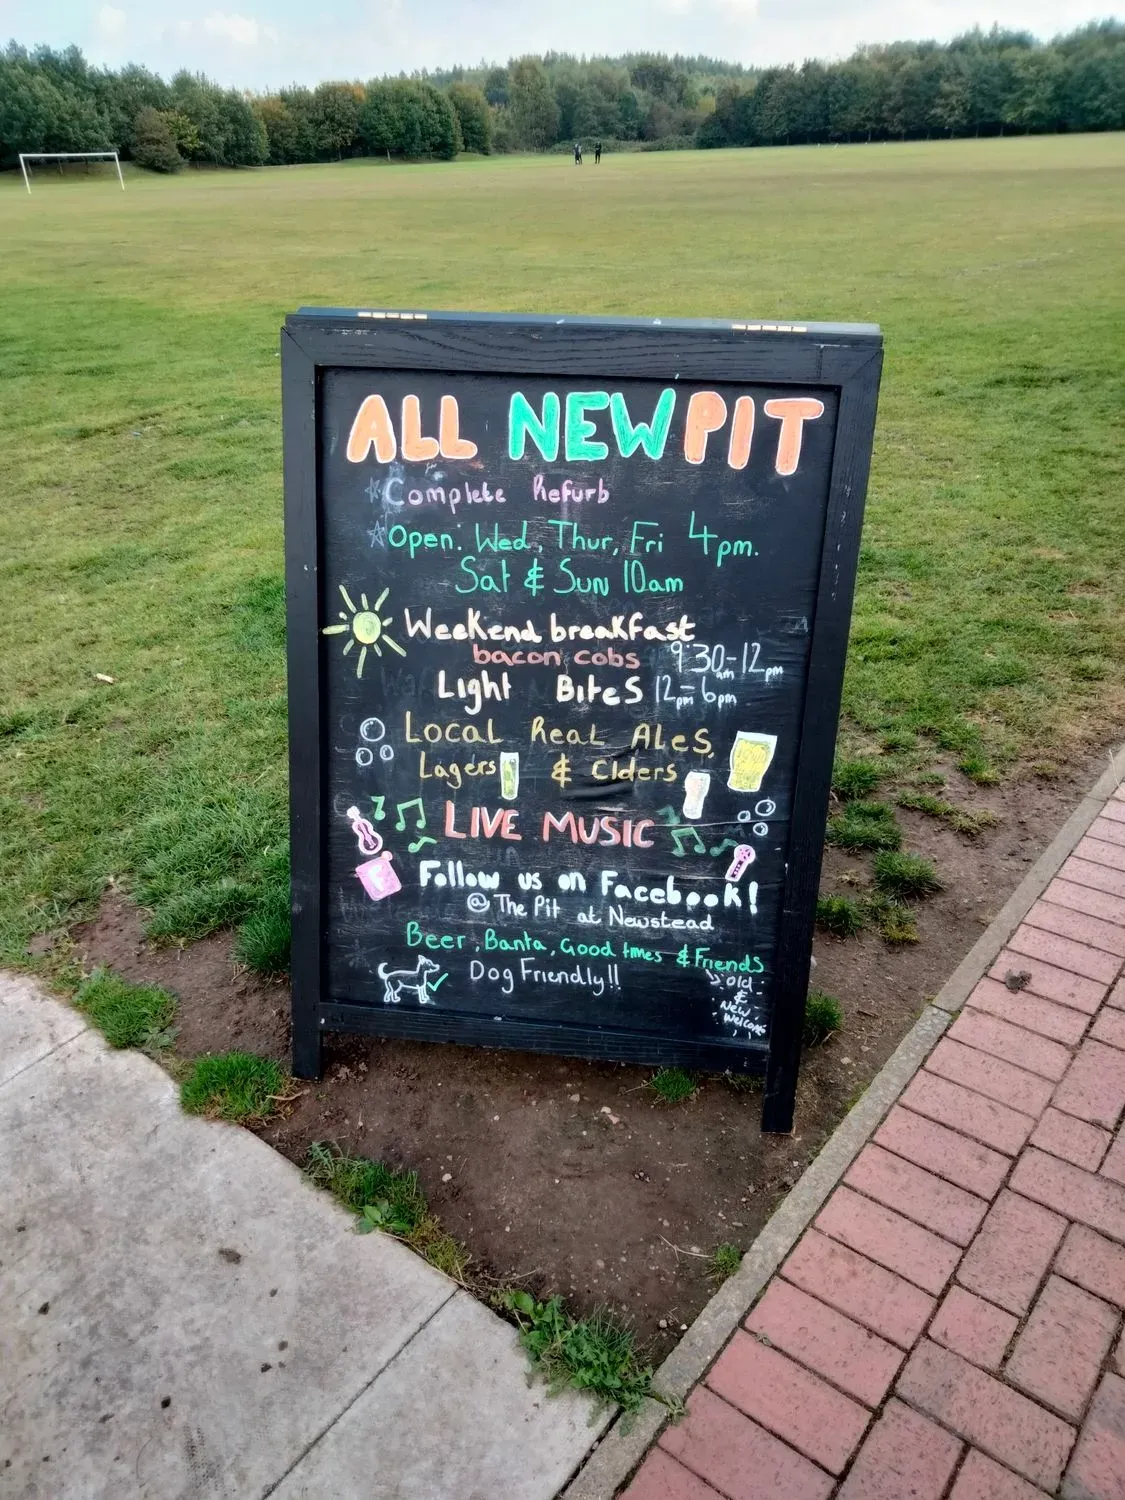 ALL NEW PIT
Complete Refurb
Open. Wed, Thur, Fri 4pm.
Sat & Sun 10am
Weekend breakfast
bacon cobs 9:30am-12pm
Light Bites 12pm-6pm
Local Real Ales,
Lagers & Ciders
LIVE MUSIC
Follow us on Facebook!
@ The Pit at Newstead
Beer, Banta, Good times & Friends
Dog Friendly!!
old
&
New
welcome